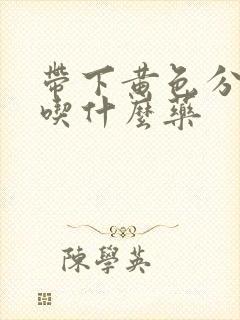 帶下黃色分
喫什麼藥
陳學英